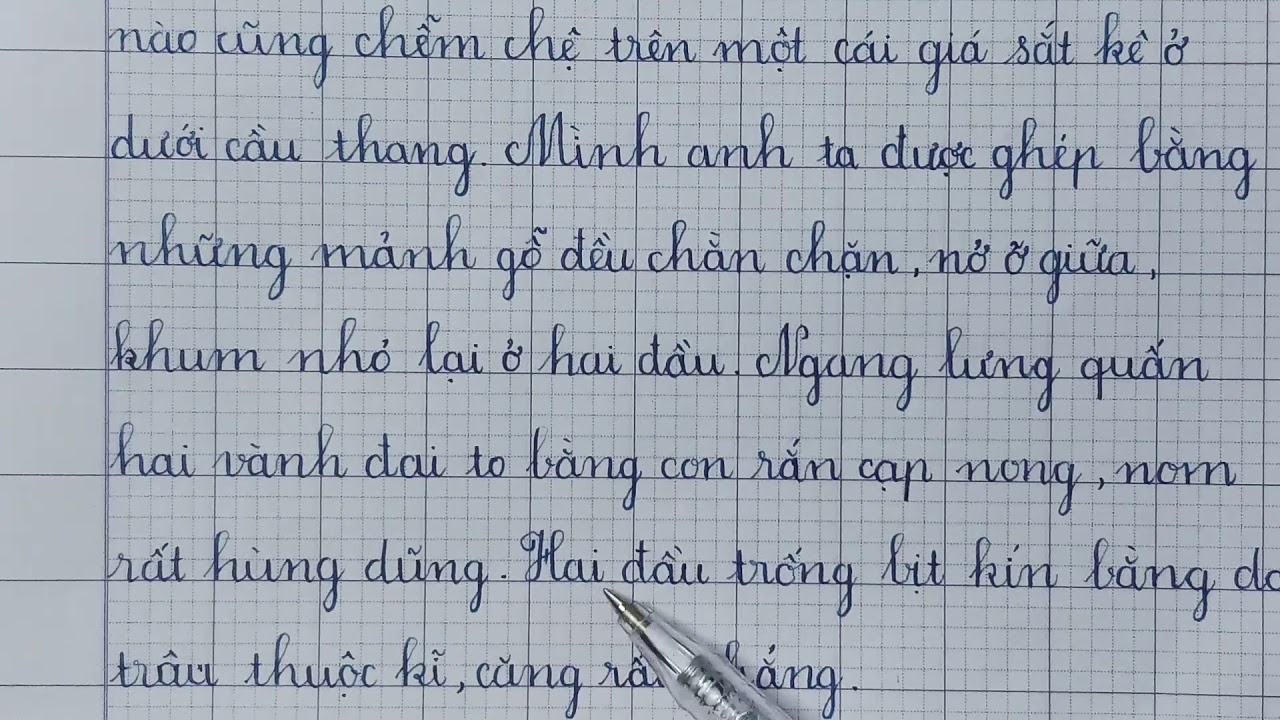 nào cũng chễm chệ trên một cái giá sắt kê ở
dưới cầu thang. Mình anh ta được ghép bằng
những mảnh gỗ đều chằn chặn, nở ở giữa,
khum nhỏ lại ở hai đầu. Ngang lưng quấn
hai vành đai to bằng con rắn cạp nong, nom
rất hùng dũng. Hai đầu trống bịt kín bằng da
trâu thuộc kĩ, căng rất